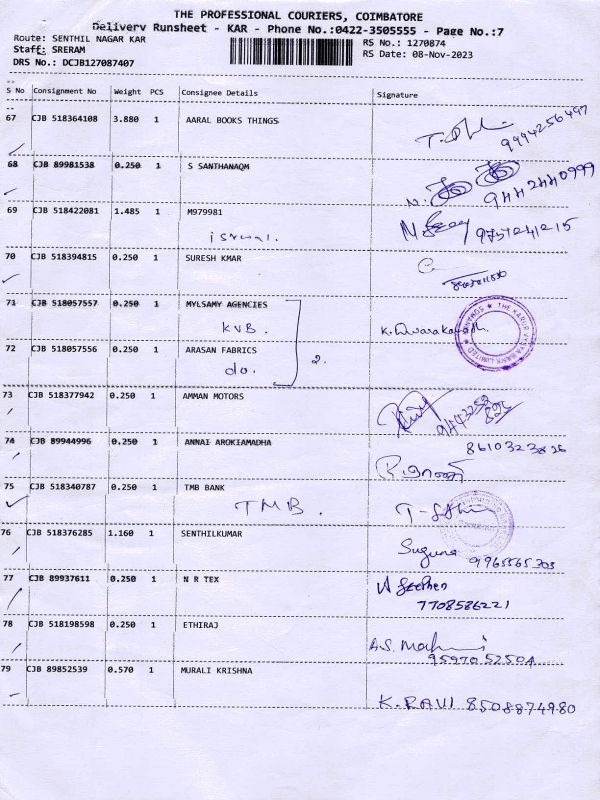 THE PROFESSIONAL COURIERS, COIMBATORE
Delivery Runsheet - KAR - Phone No.:0422-3505555 - Page No.:7
Route: SENTHIL NAGAR KAR
RS No.: 1270874
Staff: SRERAM
RS Date: 08-Nov-2023
DRS No.: DCJB127087407
S No Consignment No Weight PCS Consignee Details Signature
67 CJB 518364108 3.880 1 AARAL BOOKS THINGS
9994256497
68 CJB 89981538 0.250 1 S SANTHANAQM
9442440999
69 CJB 518422081 1.485 1 M979981
9751241215
70 CJB 518394815 0.250 1 SURESH KMAR
71 CJB 518057557 0.250 1 MYLSAMY AGENCIES
KVB. K. Dwarakanath.
THE KARUR VYSYA BANK LIMITED
72 CJB 518057556 0.250 1 ARASAN FABRICS
do. 2.
73 CJB 518377942 0.250 1 AMMAN MOTORS
74 CJB 89944996 0.250 1 ANNAI AROKIAMADHA
8610323826
75 CJB 518340787 0.250 1 TMB BANK
TMB.
76 CJB 518376285 1.160 1 SENTHILKUMAR
Suguna 9965565303
77 CJB 89937611 0.250 1 N R TEX
Stephen
7708586221
78 CJB 518198598 0.250 1 ETHIRAJ
A.S.
9597052504
79 CJB 89852539 0.570 1 MURALI KRISHNA
K. RAVI 8508874980